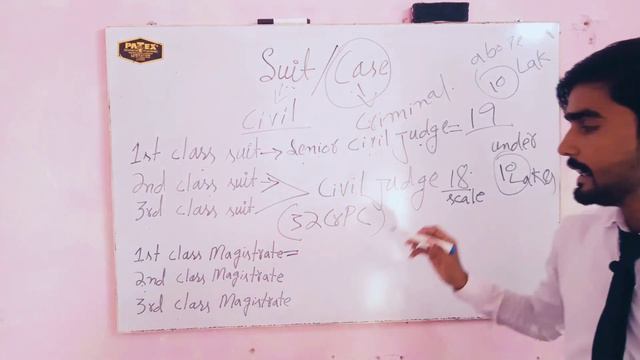 PATEX
Suit/Case
above 10 Lak
Civil
Criminal.
1st class suit → Senior Civil Judge = 19
2nd class suit →
3rd class suit
Civil Judge 18
scale
under
10 Lakes
(32 CrPC)
1st class Magistrate=
2nd class Magistrate
3rd class Magistrate